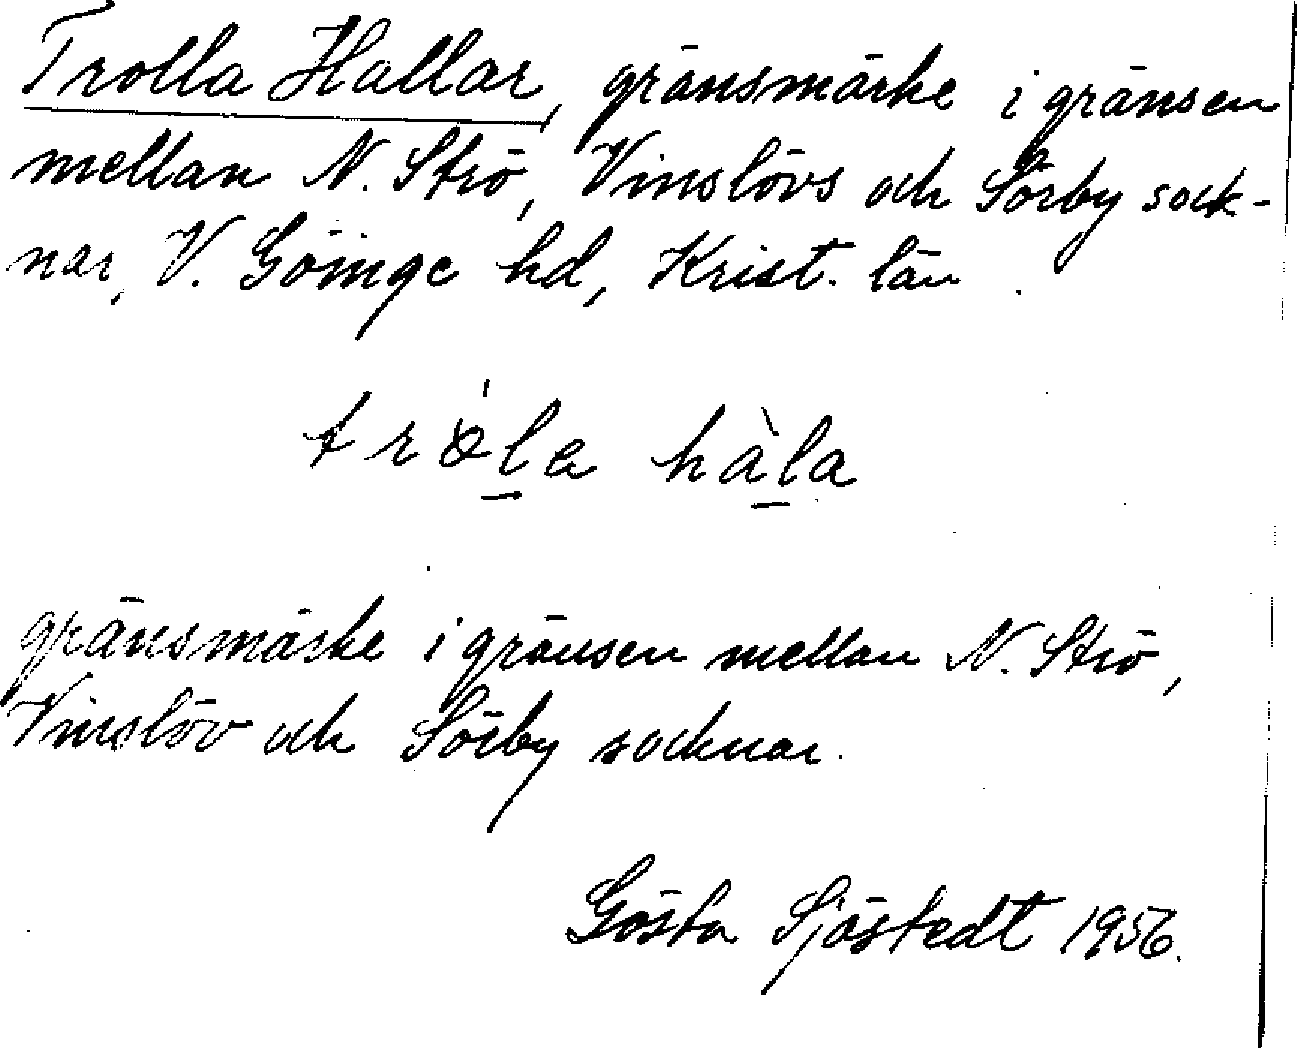 Trolla Hallar, gränsmärke i gränsen
mellan N. Strö, Vinslövs och Sörby sock-
nar, V. Göinge hd, Krist. län.
hàla
gränsmärke i gränsen mellan N. Strö,
Vinslöv och Sörby socknar.
Gösta Sjöstedt 1956.